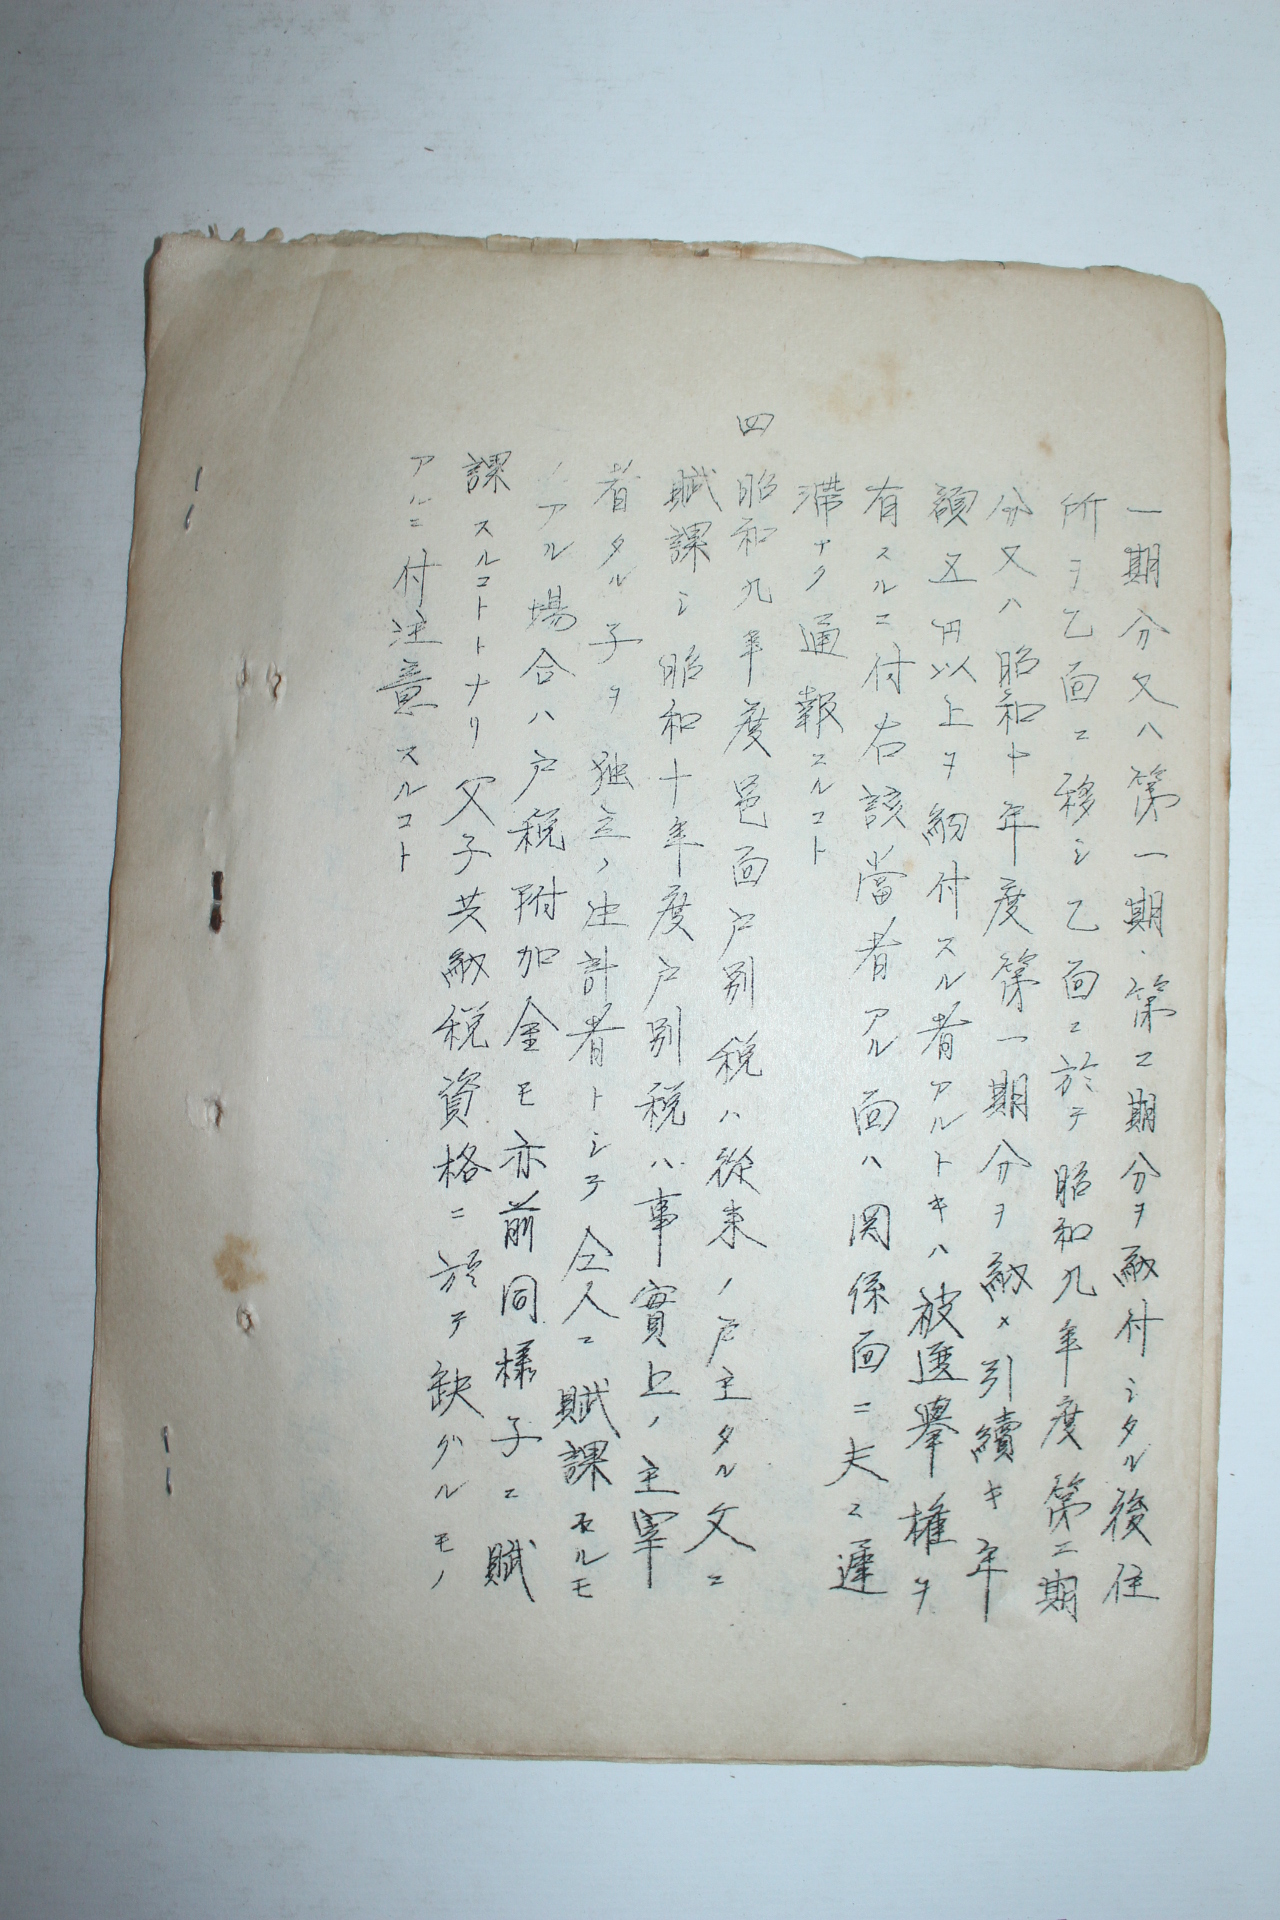 一期分又ハ第一期、第二期分ヲ納付シタル後住
所ヲ乙面ニ移シ乙面ニ於テ昭和九年度第二期
分又ハ昭和十年度第一期分ヲ納メ引續キ年
額五円以上ヲ納付スル者アルトキハ被選擧権ヲ
有スルニ付右該當者アル面ハ関係面ニ夫々遅
滞ナク通報スルコト
四 昭和九年度邑面戸別税ハ從来ノ戸主タル父ニ
賦課シ昭和十年度戸別税ハ事實上ノ主宰
者タル子ヲ独立ノ生計者トシテ仝人ニ賦課セルモ
ノアル場合ハ戸税附加金モ亦前同様子ニ賦
課スルコトトナリ父子共納税資格ニ於テ缺グルモノ
アルニ付注意スルコト